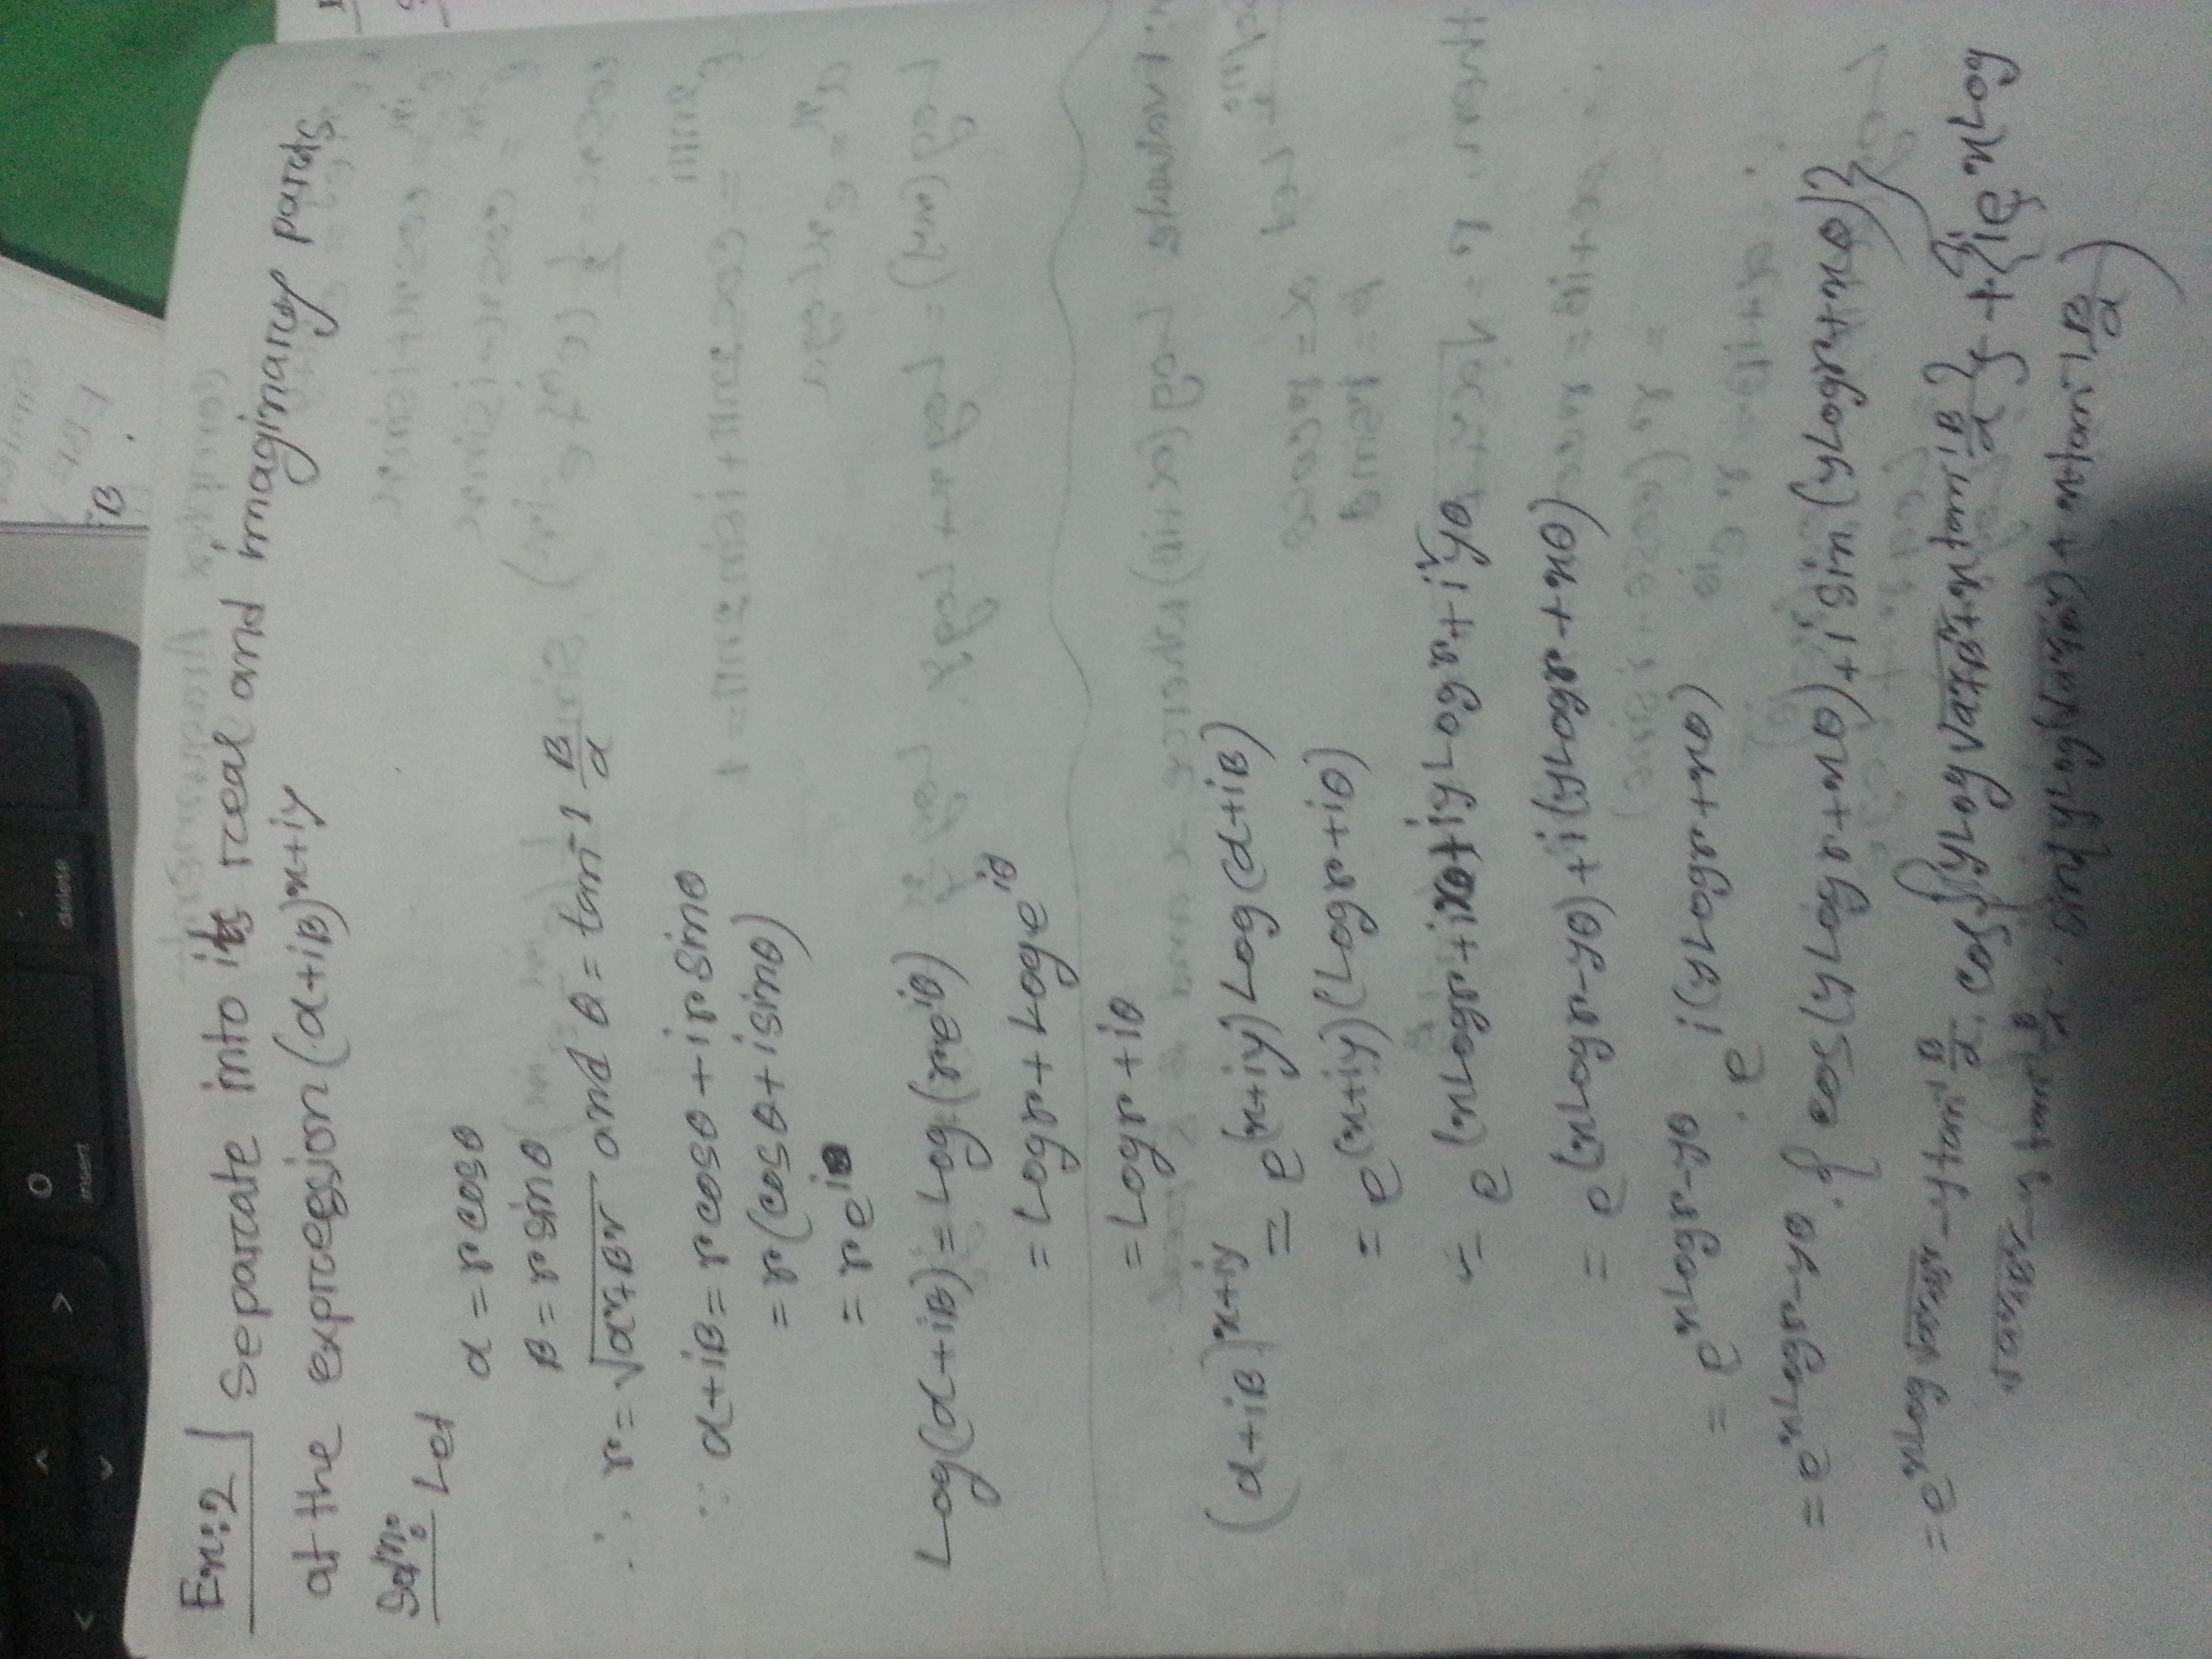 O
insert
delete
iB
Ex:2 Separate into its real and imaginary parts
at the expression (α+iβ)^x+iy
Soln: Let
α = r cosθ
β = r sinθ
∴ r = √α²+β² and θ = tan⁻¹ β/α
∵ α+iβ = r cosθ + i r sinθ
= r(cosθ + i sinθ)
= r e^iθ
Log(α+iβ) = Log(re^iθ)
= Logr + Loge^iθ
= Logr + iθ
(α+iβ)^x+iy = e^(x+iy) Log(α+iβ)
= e^(x+iy)(Logr+iθ)
= e^(xLogr+ixθ+iyLogr+i²yθ
= e^(xLogr-yθ)+i(yLogr+xθ)
= e^xLogr-yθ . e^i(yLogr+xθ)
= e^xLogr-yθ . { cos(yLogr+xθ)+i sin(yLogr+xθ)}
= e^xLog√α²+β² - y tan⁻¹ β/α . cos{yLog√α²+β² + x tan⁻¹ β/α} + {ie^xLog
√α²+β² - y tan⁻¹ β/α . sin{yLog(√α²+β²) + x tan⁻¹ β/α)